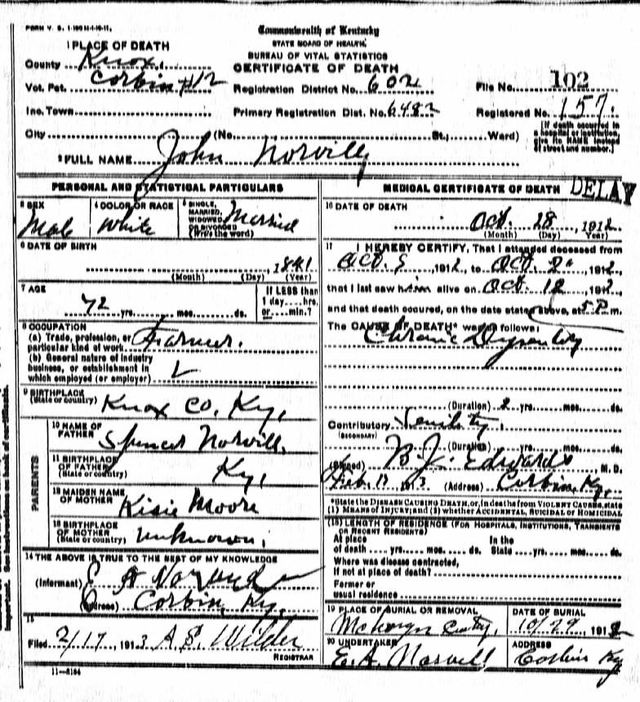 FORM V. S. 1-
Commonwealth of Kentucky
STATE BOARD OF HEALTH
BUREAU OF VITAL STATISTICS
CERTIFICATE OF DEATH
1 PLACE OF DEATH
County Knox
Vot. Pct. Corbin #12
Registration District No. 602
File No. 102
Inc. Town
Primary Registration Dist. No. 6482
Registered No. 157
City (No. St.; Ward)
[If death occurred in a hospital or institution, give its NAME instead of street and number.]
2 FULL NAME John Norvill
PERSONAL AND STATISTICAL PARTICULARS
3 SEX Male
4 COLOR OR RACE White
5 SINGLE, MARRIED, WIDOWED OR DIVORCED (Write the word) Married
6 DATE OF BIRTH
1841
(Month) (Day) (Year)
7 AGE
72 yrs. mos. ds.
If LESS than 1 day hrs. or min.?
8 OCCUPATION
(a) Trade, profession, or particular kind of work Farmer.
(b) General nature of industry business, or establishment in which employed (or employer)
9 BIRTHPLACE
(State or country) Knox Co. Ky.
PARENTS
10 NAME OF FATHER Spencer Norvill
11 BIRTHPLACE OF FATHER (State or country) Ky.
12 MAIDEN NAME OF MOTHER Kisie Moore
13 BIRTHPLACE OF MOTHER (State or country) unknown.
14 THE ABOVE IS TRUE TO THE BEST OF MY KNOWLEDGE
(Informant) E A
(Address) Corbin Ky.
15
Filed 2/17, 1913 A S. Wilder
REGISTRAR
11-5184
MEDICAL CERTIFICATE OF DEATH DELAY
16 DATE OF DEATH
Oct. 28 1912
(Month) (Day) (Year)
17 I HEREBY CERTIFY, That I attended deceased from
Oct. 5, 1912, to Oct. , 1912
that I last saw him alive on Oct. 12 1912
and that death occured, on the date stated above, at 5 P. m.
The CAUSE OF DEATH* was as follows:
Chronic Dysentery
(Duration) 2 yrs. mos. ds.
Contributory
(SECONDARY)
(Duration) yrs. mos. ds.
(Signed) B. J. Edwards M. D.
Feb. 13 (Address) Corbin, Ky.
*State the DISEASE CAUSING DEATH, or, in deaths from VIOLENT CAUSES, state
(1) MEANS OF INJURY; and (2) whether ACCIDENTAL, SUICIDAL or HOMICIDAL
(18) LENGTH OF RESIDENCE (FOR HOSPITALS, INSTITUTIONS, TRANSIENTS OR RECENT RESIDENTS)
At place of death yrs. mos. ds.
In the State yrs. mos. ds.
Where was disease contracted, if not at place of death?
Former or usual residence
19 PLACE OF BURIAL OR REMOVAL
DATE OF BURIAL
10/29 1912
20 UNDERTAKER
E. A. Norvell
ADDRESS
Corbin Ky